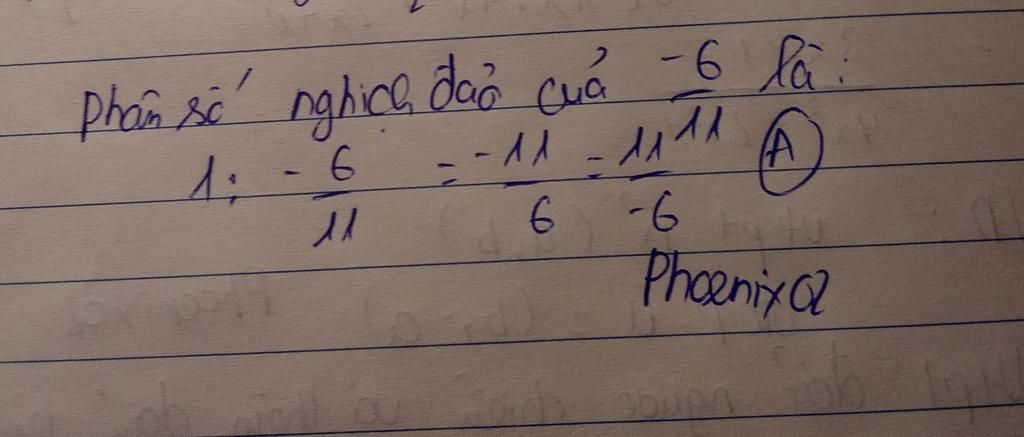 Phân số nghịch đảo của -6/11 là:
1: -6/11 = -11/6 = 11/-6 (A)
PhoenixQ